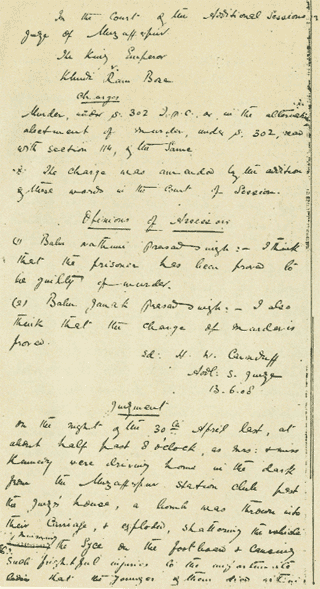 In the Court of the Additional Sessions
Judge of Muzaffarpur
The King Emperor
v
Khudi Ram Bose
Charges
Murder, under s. 302 I.P.C., or, in the alternative
abetment of murder, under s. 302, read
with section 114, of the Same
* The Charge was amended by the addition
of these words in the Court of Session.
Opinions of Assessors
(1) Babu Nathuni Prasad Singh: – I think
that the prisoner has been proved to
be guilty of murder.
(2) Babu Janak Prasad Singh: – I also
think that the charge of murder is
proved.
Sd: H. W. Carnduff
Addl: S. Judge
13.6.08
Judgment
On the night of the 30th April last, at
about half past 8 o'clock, as Mrs: & Miss
Kennedy were driving home in the dark
from the Muzaffarpur Station Club past
the Judge's house, a bomb was thrown into
their Carriage, & exploded, shattering the vehicle
the Syce on the footboard & causing
such frightful injuries to the unfortunate
ladies that the younger of them died within